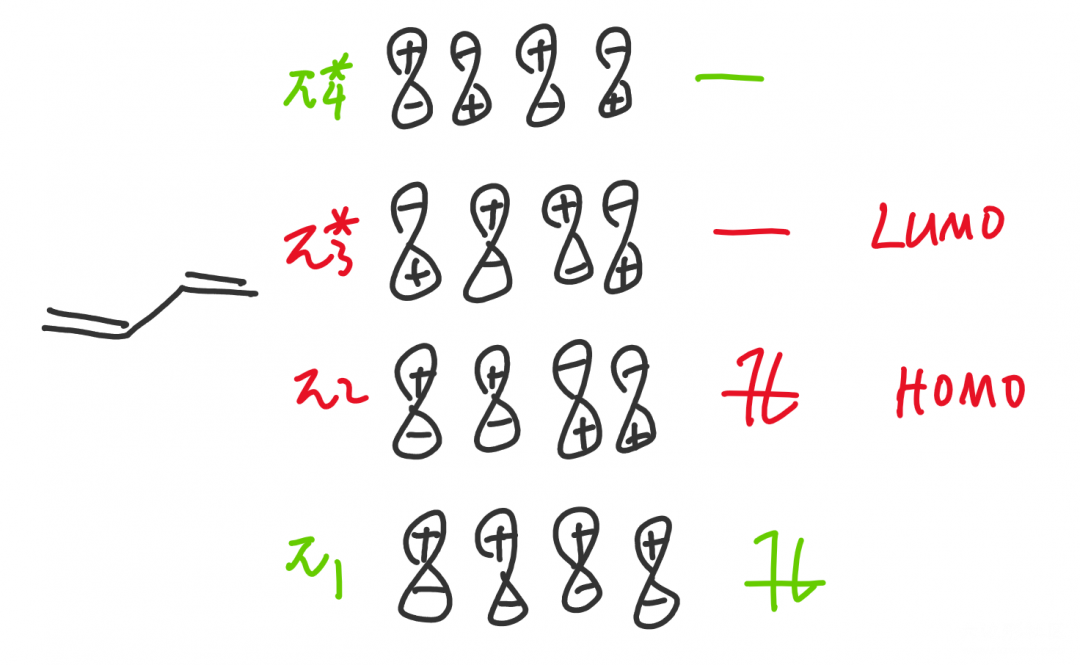 π4* + - + -
- + - +
π3* - + + - LUMO
+ - - +
π2 + + - - HOMO
- - + +
π1 + + + +
- - - -